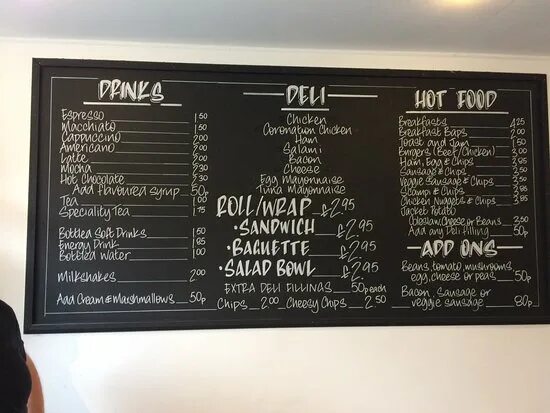 DRINKS
Espresso 1.50
Macchiato 1.50
Cappuccino 2.00
Americano
Latte
Mocha
Hot Chocolate 2.30
Add flavoured syrup 50p
Tea 1.00
Speciality Tea 1.75
Bottled Soft Drinks 1.50
Energy Drink
Bottled Water 1.00
Milkshakes 2.00
Add Cream & Marshmallows 50p
DELI
Chicken
Coronation Chicken
Ham
Salami
Bacon
Cheese
Egg Mayonnaise
Tuna Mayonnaise
ROLL/WRAP £2.95
• SANDWICH £2.95
• BAGUETTE £2.95
• SALAD BOWL £2.95
EXTRA DELI FILLINGS 50p each
Chips 2.00 Cheesy Chips 2.50
HOT FOOD
Breakfasts 4.25
Breakfast Baps 2.00
Toast and Jam 1.50
Burgers (Beef/Chicken) 3.00
Ham, Egg & Chips
Sausage & Chips
Veggie Sausage & Chips
Scampi & Chips
Chicken Nuggets & Chips
Jacket Potato
Coleslaw, Cheese or Beans 3.50
Add any Deli filling 50p
ADD ONS
Beans, tomato, mushrooms
egg, cheese or peas 50p
Bacon, Sausage or
veggie sausage 80p